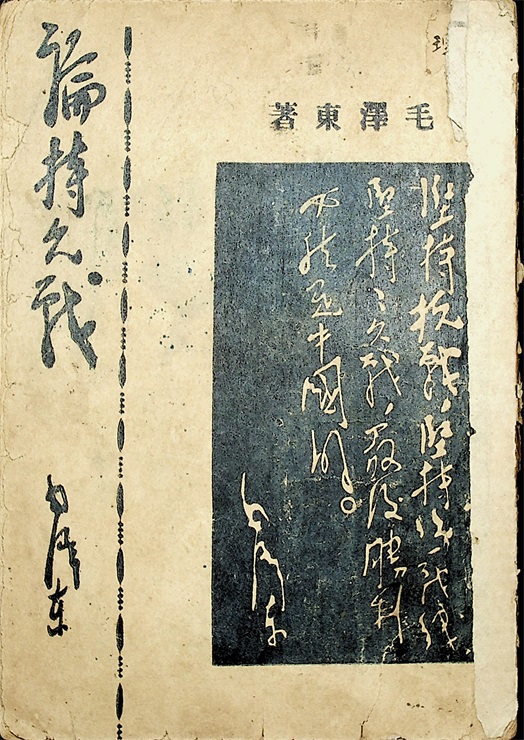 毛澤東著
堅持抗戰、堅持統一戰線
堅持々久戰、最後勝利
必然是中國的。
毛澤東
論持久戰
毛澤東